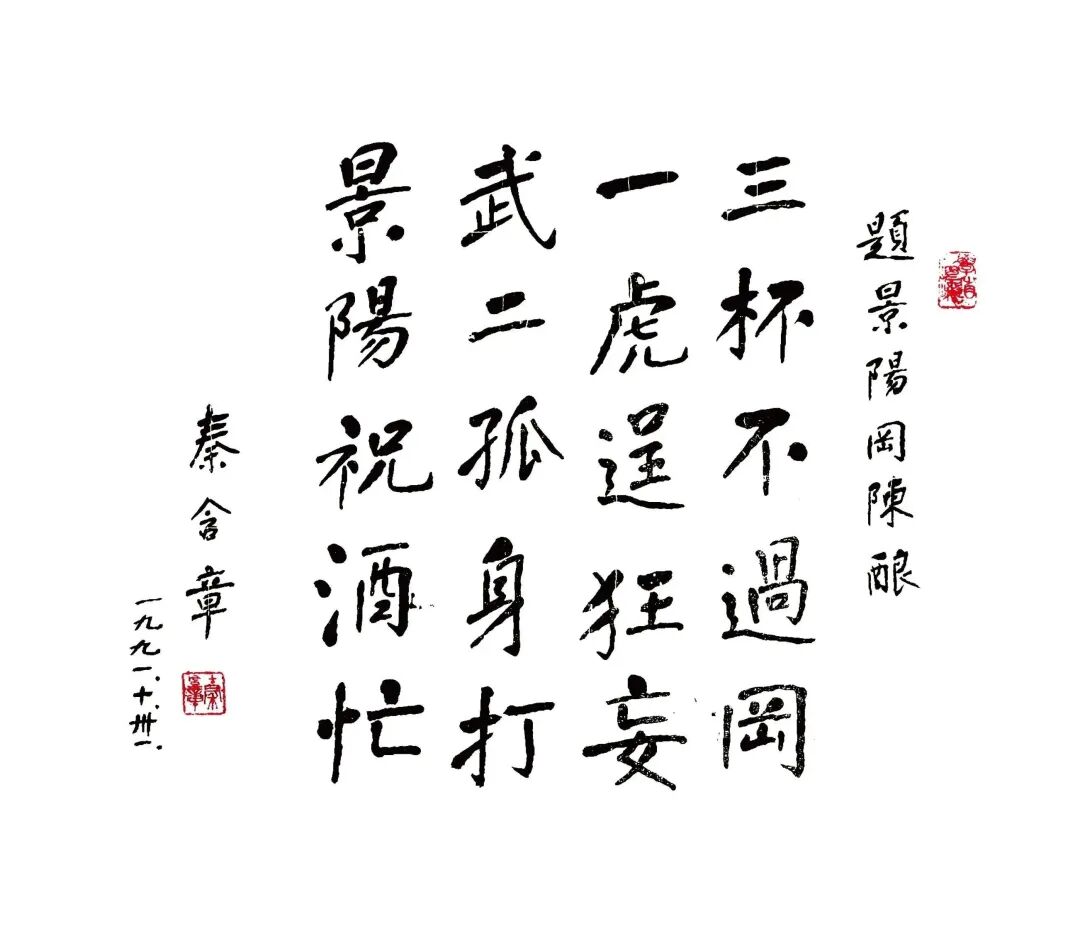 題景陽岡陳酿
三杯不過岡
一虎逞狂妄
武二孤身打
景陽祝酒忙
秦含章
一九九一.十.卅一.